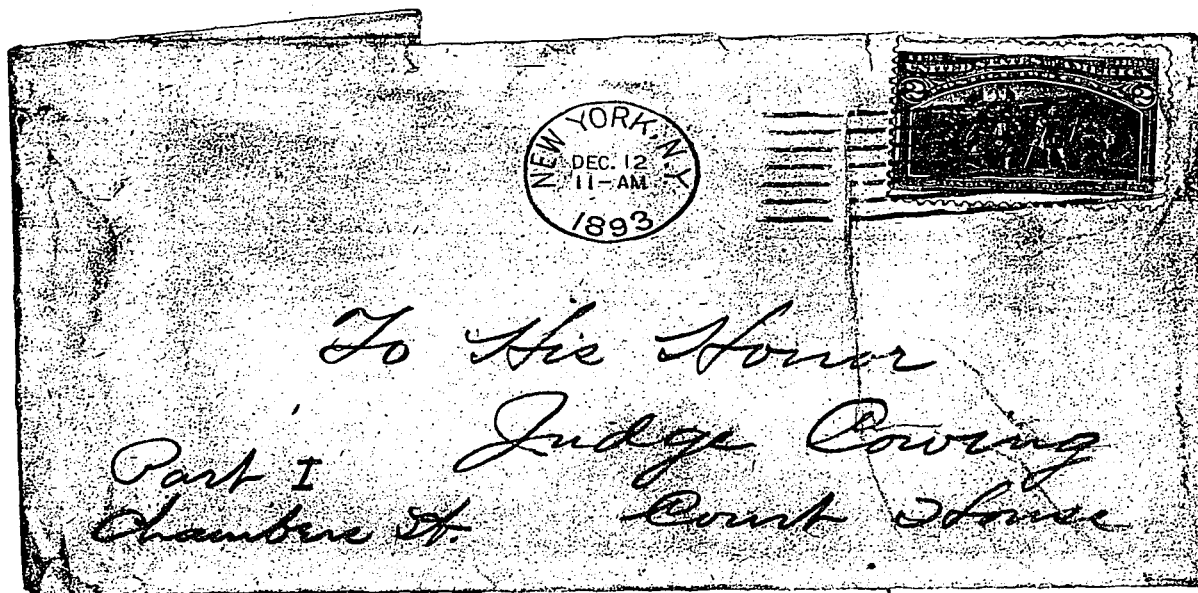 NEW YORK, N.Y.
DEC. 12
11-AM
1893
2 2
To His Honor
Judge Cowing
Part I
Chambers St. Court House